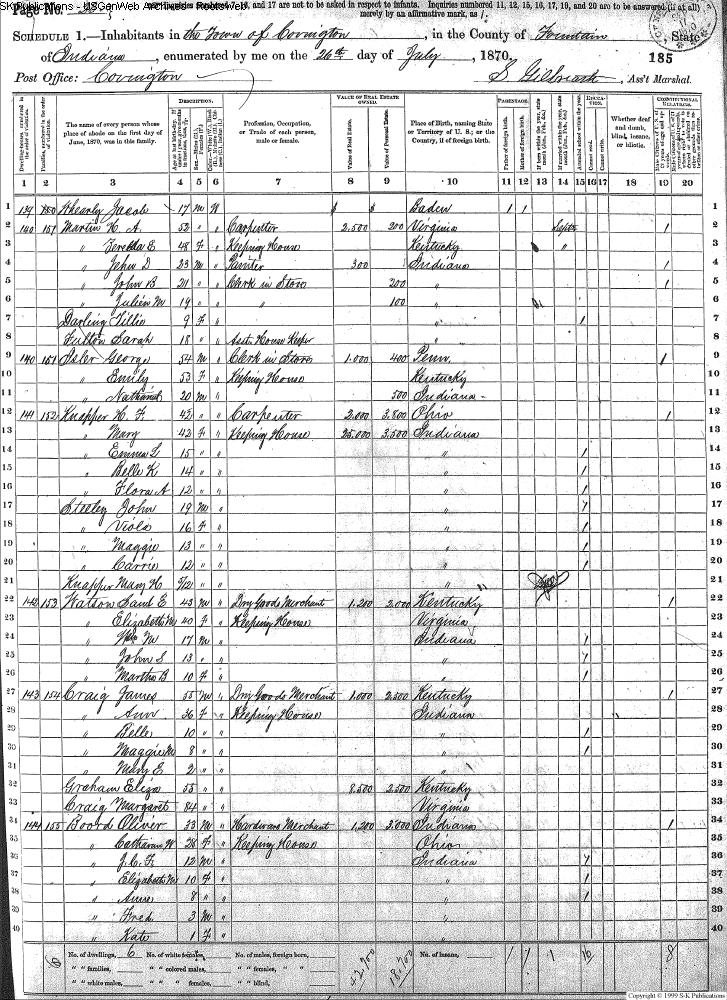 SKPublications - USGenWeb Archives - Rootsweb.
Page No.
and 17 are not to be asked in respect to infants. Inquiries numbered 11, 12, 15, 16, 17, 19, and 20 are to be answered (if at all)
merely by an affirmative mark, as /.
SCHEDULE 1.—Inhabitants in the Town of Covington, in the County of Fountain, State
of Indiana, enumerated by me on the 26th day of July, 1870. 185
Post Office: Covington S Gilbreath, Ass't Marshal.
DESCRIPTION. VALUE OF REAL ESTATE OWNED. PARENTAGE. EDUCATION. CONSTITUTIONAL RELATIONS.
The name of every person whose place of abode on the first day of June, 1870, was in this family.
Profession, Occupation, or Trade of each person, male or female.
Value of Real Estate. Value of Personal Estate.
Place of Birth, naming State or Territory of U. S.; or the Country, if of foreign birth.
Father of foreign birth. Mother of foreign birth.
Attended school within the year. Cannot read. Cannot write.
Whether deaf and dumb, blind, insane, or idiotic.
1 2 3 4 5 6 7 8 9 10 11 12 13 14 15 16 17 18 19 20
1 139 150 Jacob 17 M W $ $ Baden / / 1
2 140 151 Martin H. A. 52 " " Carpenter 2,500 200 Virginia / 2
3 " 48 F " Keeping House Kentucky 3
4 " John D 23 M " Painter 300 Indiana / 4
5 " John B 21 " " Clerk in Store 200 " / 5
6 " Julien M 19 " " 100 " 6
7 Darling Tillie 9 F " " / 7
8 Fulton Sarah 18 " " Asst. House Keeper " 8
9 140 151 Isler George 54 M " Clerk in Store 1,000 400 Penn. / 9
10 " Emily 53 F " Keeping House Kentucky 10
11 " Nathaniel 20 M " 500 Indiana 11
12 141 152 Knapper H. F. 42 " " Carpenter 2,000 3,800 Ohio / 12
13 " Mary 42 F " Keeping House 25,000 3,500 Indiana 13
14 " Emma L 15 " " " / 14
15 " Belle K 14 " " " / 15
16 " Flora A 12 " " " / 16
17 Steeley John 19 M " " / 17
18 " Viola 16 F " " / 18
19 " Maggie 13 " " " / 19
20 " Carrie 12 " " " / 20
21 Knapper Mary H 5/12 " " " 21
22 142 153 Watson Saml E 43 M " Dry Goods Merchant 1,200 2,000 Kentucky / 22
23 " Elizabeth M 40 F " Keeping House Virginia 23
24 " Wm W 17 M " Indiana / 24
25 " John S 13 " " " / 25
26 " Martha B 10 F " " / 26
27 143 154 Craig James 55 M " Dry Goods Merchant 1,000 2,500 Kentucky / 27
28 " Ann 36 F " Keeping House Indiana 28
29 " Belle 10 " " " / 29
30 " Maggie M 8 " " " / 30
31 " Mary E 2 " " " 31
32 Graham Eliza 55 " " 8,500 2,500 Kentucky 32
33 Craig Margaret 84 " " Virginia 33
34 144 155 Boord Oliver 33 M " Hardware Merchant 1,200 3,000 Indiana / 34
35 " Catharine W 28 F " Keeping House Ohio 35
36 " J. C. F. 12 M " Indiana / 36
37 " Elizabeth M 10 F " " / 37
38 " Anna 8 " " " / 38
39 " Fred 3 M " " 39
40 " Kate 1 F " " 40
No. of dwellings, 6 No. of white females, No. of males, foreign born, No. of insane,
" " families, " " colored males, " " females, " "
" " white males, " " " females, " " blind,
6 / / 1 16 8
Copyright © 1999 S-K Publications